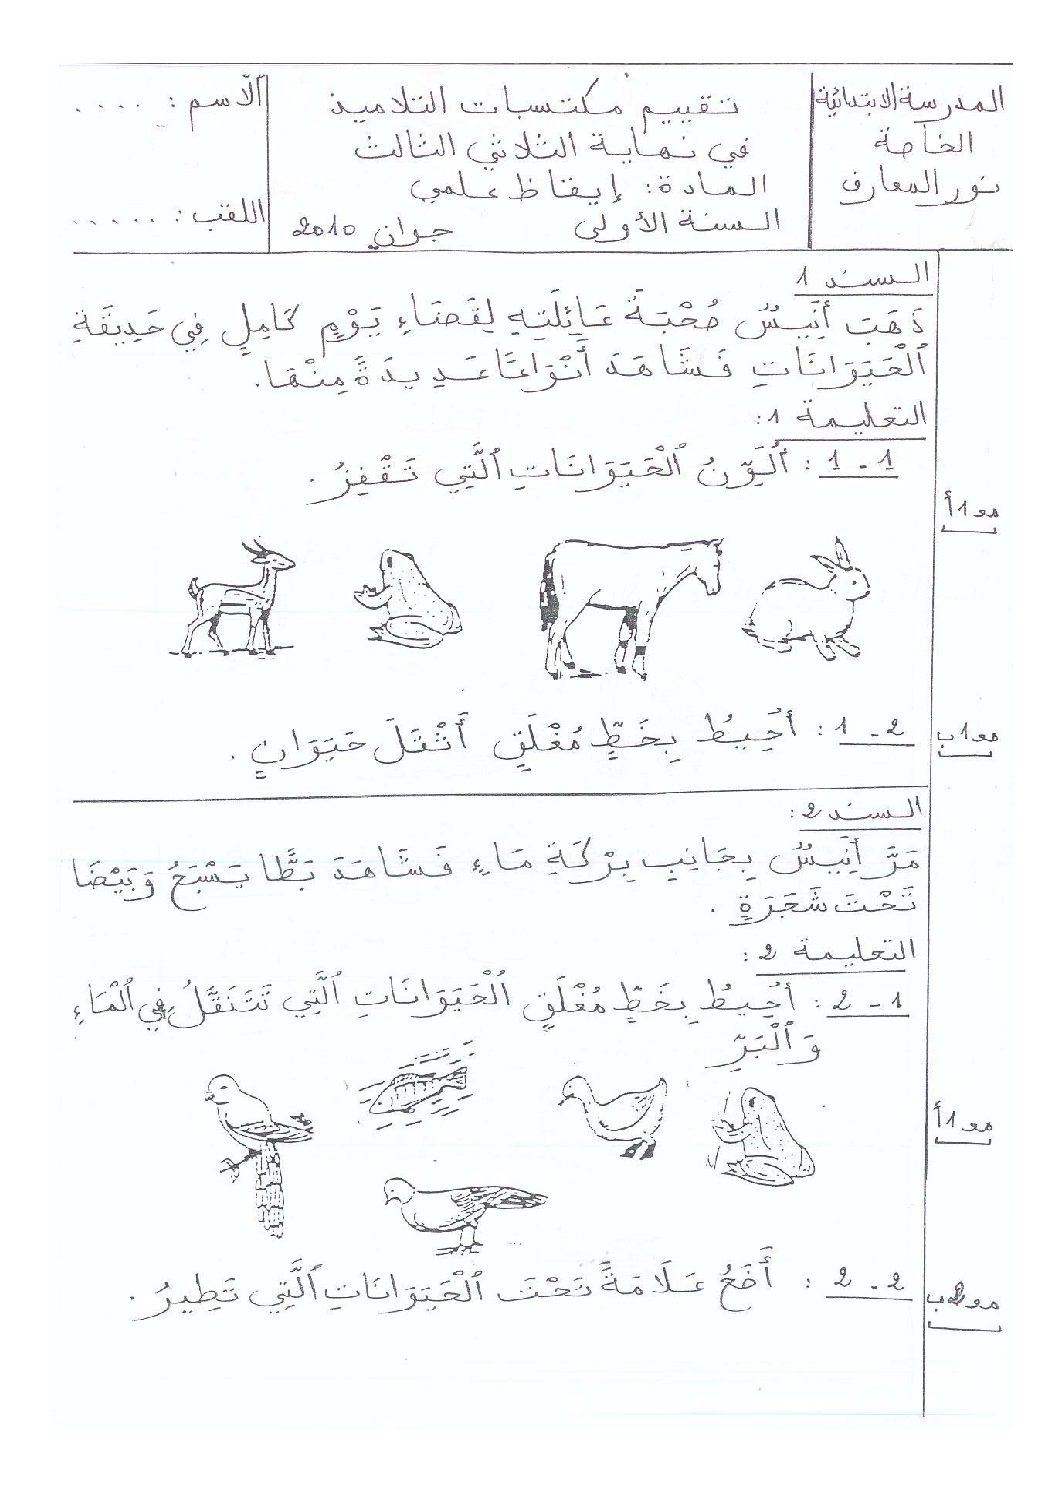 المدرسة الابتدائية
الخاصة
نور المعارف
تقييم مكتسبات التلاميذ
في نهاية الثلاثي الثالث
المادة: إيقاظ علمي
السنة الأولى جوان 2010
الاسم: ....
اللقب: .....
السند 1
ذَهَبَ أَنِيسٌ صُحْبَةَ عَائِلَتِهِ لِقَضَاءِ يَوْمٍ كَامِلٍ فِي حَدِيقَةِ
ٱلْحَيَوَانَاتِ فَشَاهَدَ أَنْوَاعًا عَدِيدَةً مِنْهَا.
التعليمة 1:
1 - 1 : أُلَوِّنُ ٱلْحَيَوَانَاتِ ٱلَّتِي تَقْفِزُ.
مع 1 أ
2 - 1 : أُحِيطُ بِخَطٍّ مُغْلَقٍ أَثْقَلَ حَيَوَانٍ.
مع 1 ب
السند 2:
مَرَّ أَنِيسٌ بِجَانِبِ بِرْكَةِ مَاءٍ فَشَاهَدَ بَطًّا يَسْبَحُ وَبَيْضًا
تَحْتَ شَجَرَةٍ.
التعليمة 2:
1 - 2 : أُحِيطُ بِخَطٍّ مُغْلَقٍ ٱلْحَيَوَانَاتِ ٱلَّتِي تَتَنَقَّلُ فِي ٱلْمَاءِ
وَٱلْبَرِّ
مع 1 أ
2 - 2 : أَضَعُ عَلَامَةً تَحْتَ ٱلْحَيَوَانَاتِ ٱلَّتِي تَطِيرُ.
مع 2 ب